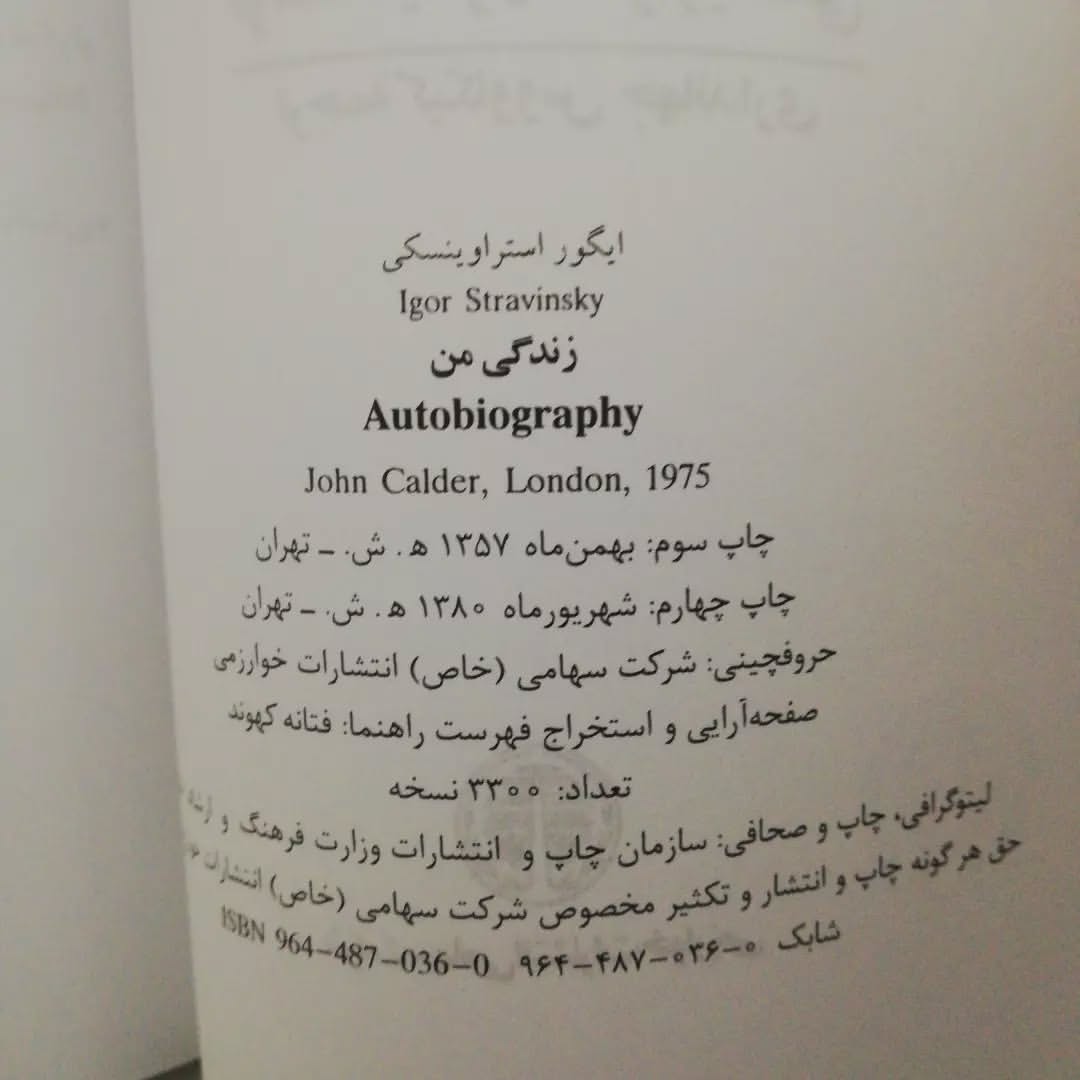 ایگور استراوینسکی
Igor Stravinsky
زندگی من
Autobiography
John Calder, London, 1975
چاپ سوم: بهمن‌ماه ۱۳۵۷ ه‍. ش. ــ تهران
چاپ چهارم: شهریورماه ۱۳۸۰ ه‍. ش. ــ تهران
حروفچینی: شرکت سهامی (خاص) انتشارات خوارزمی
صفحه‌آرایی و استخراج فهرست راهنما: فتانه کهوند
تعداد: ۳۳۰۰ نسخه
لیتوگرافی، چاپ و صحافی: سازمان چاپ و انتشارات وزارت فرهنگ و
حق هر گونه چاپ و انتشار و تکثیر مخصوص شرکت سهامی (خاص) انتشارات
شابک ۰-۰۳۶-۴۸۷-۹۶۴ ISBN 964-487-036-0